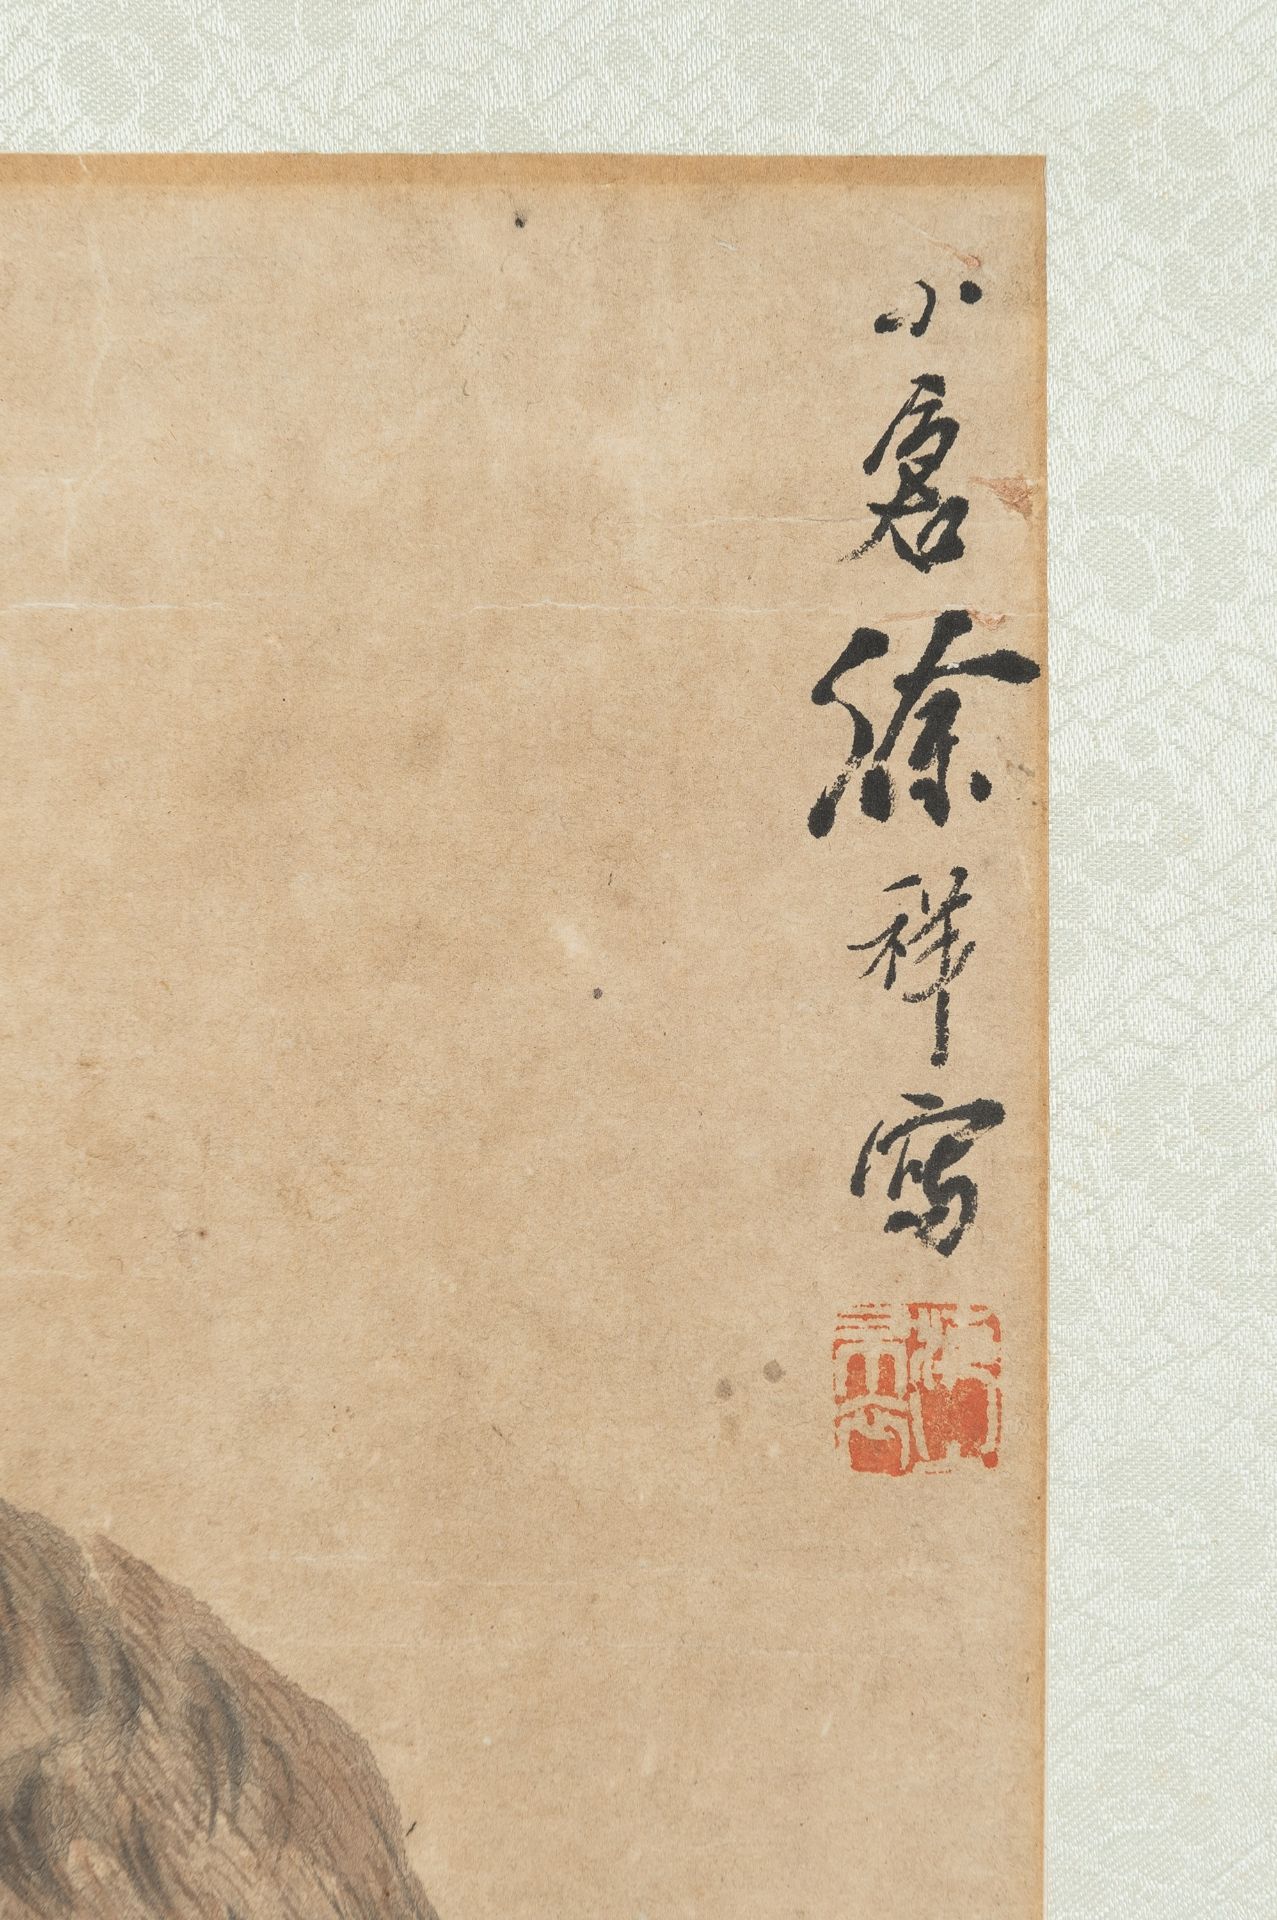 小倉徐祥寫